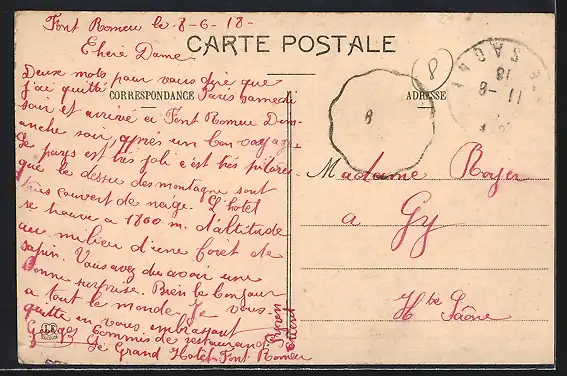 Font Romeu le 8-6-18-
Chère Dame
CARTE POSTALE
Deux mots pour vous dire que
j'ai quitté Paris samedi
CORRESPONDANCE
ADRESSE
soir et arrivé à Font Romeu Dim-
anche soir après un bon voyage
Le pays est très joli c'est très pitores-
que le dessus des montagne sont
tous couvert de neige. L'hotel
se trouve a 1800 m. d'altitude
au milieu d'une foret de
sapin. Vous avez du avoir une
bonne surprise. Bien le bonjour
a tout le monde. Je vous
quitte en vous embrassant
Georges commis de restaurant
Le Grand Hotel Font Romeu
Madame Royer
a Gy
Hte Saône
8
8
11-8
18